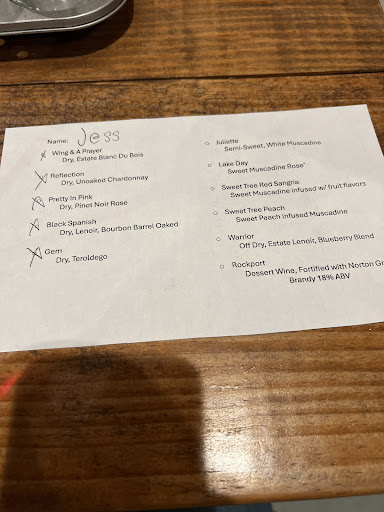 Name: Jess
Wing & A Prayer
Dry, Estate Blanc Du Bois
Reflection
Dry, Unoaked Chardonnay
Pretty In Pink
Dry, Pinot Noir Rose
Black Spanish
Dry, Lenoir, Bourbon Barrel Oaked
Gem
Dry, Teroldego
Juliette
Semi-Sweet, White Muscadine
Lake Day
Sweet Muscadine Rose'
Sweet Tree Red Sangria
Sweet Muscadine infused w/ fruit flavors
Sweet Tree Peach
Sweet Peach infused Muscadine
Warrior
Off Dry, Estate Lenoir, Blueberry Blend
Rockport
Dessert Wine, Fortified with Norton Gr
Brandy 18% ABV